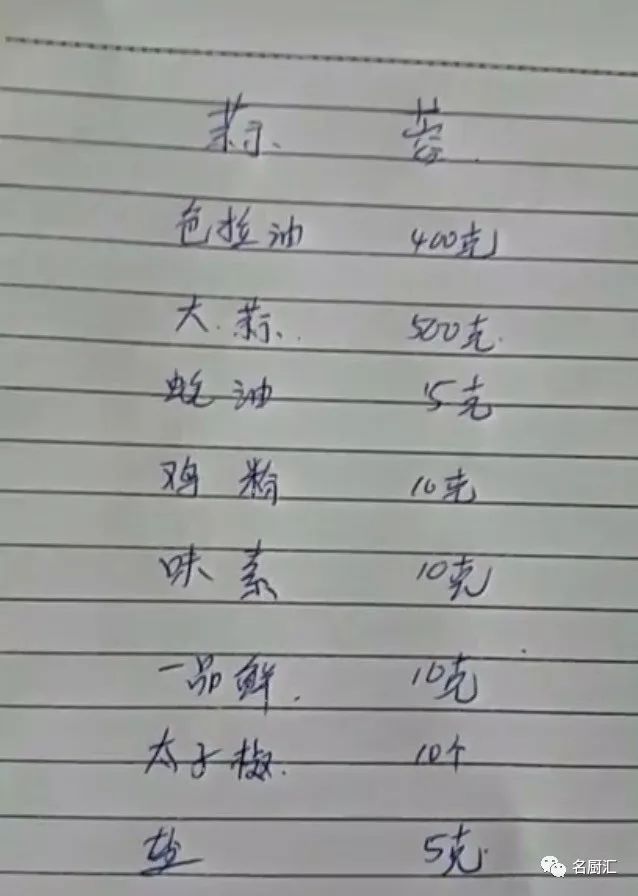 蒜蓉
色拉油 400克
大蒜 500克
蚝油 15克
鸡粉 10克
味素 10克
一品鲜 10克
太子椒 10个
盐 5克
名厨汇